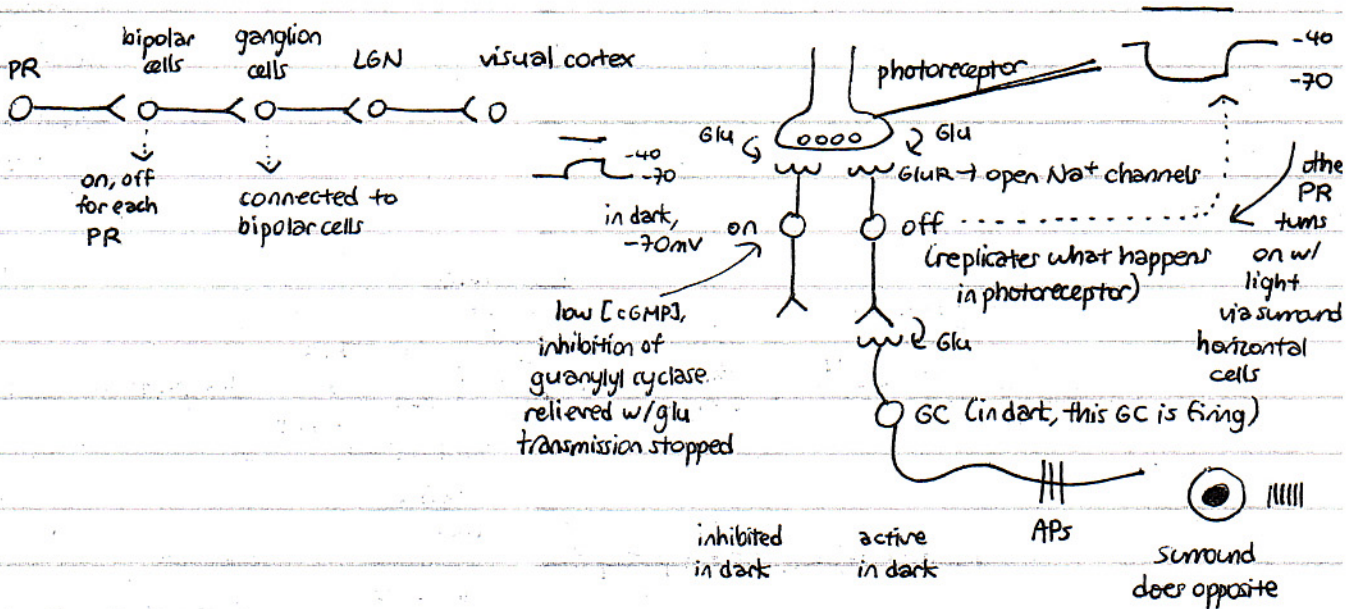 PR
bipolar
cells
ganglion
cells
LGN
visual cortex
on, off
for each
PR
connected to
bipolar cells
photoreceptor
-40
-70
Glu
Glu
GluR → open Na⁺ channels
-40
-70
in dark,
-70mV
on
off
(replicates what happens
in photoreceptor)
othe
PR
turns
on w/
light
via surround
horizontal
cells
low [cGMP],
inhibition of
guanylyl cyclase
relieved w/glu
transmission stopped
Glu
GC (in dark, this GC is firing)
APs
inhibited
in dark
active
in dark
surround
does opposite